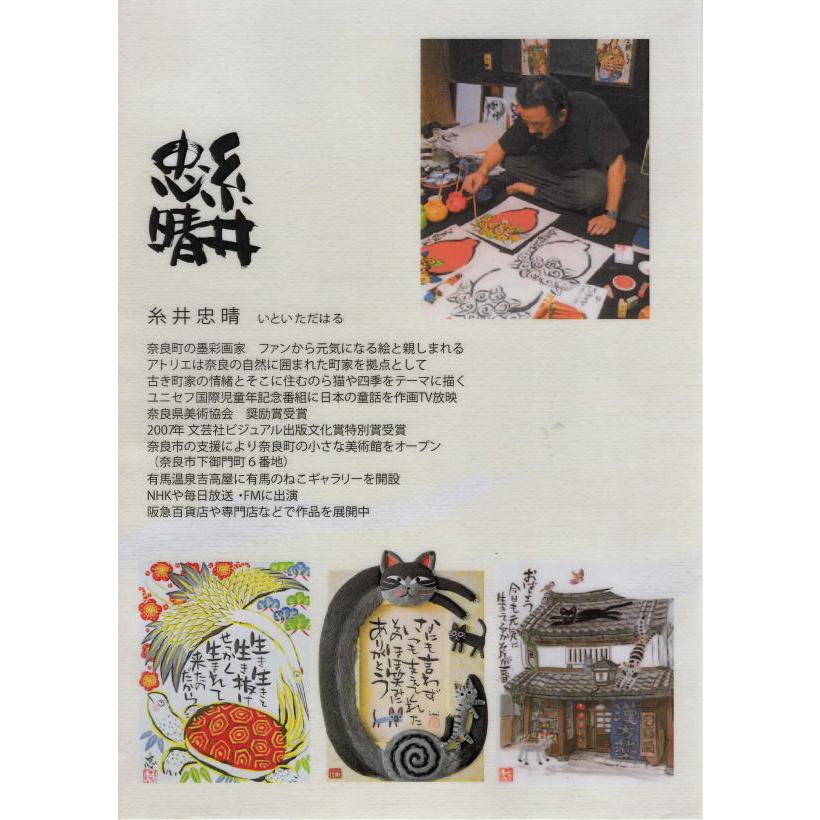 糸井
忠晴
糸井忠晴 いといただはる
奈良町の墨彩画家 ファンから元気になる絵と親しまれる
アトリエは奈良の自然に囲まれた町家を拠点として
古き町家の情緒とそこに住むのら猫や四季をテーマに描く
ユニセフ国際児童年記念番組に日本の童話を作画TV放映
奈良県美術協会 奨励賞受賞
2007年 文芸社ビジュアル出版文化賞特別賞受賞
奈良市の支援により奈良町の小さな美術館をオープン
（奈良市下御門町６番地）
有馬温泉吉高屋に有馬のねこギャラリーを開設
NHKや毎日放送・FMに出演
阪急百貨店や専門店などで作品を展開中
生き生きと
生き抜け
せっかく
生まれて
来たの
だから
忠
なにも言わず
いつも支えてくれた
そのまま笑みに
ありがとう
おはよう
今日も元気に
漢方薬